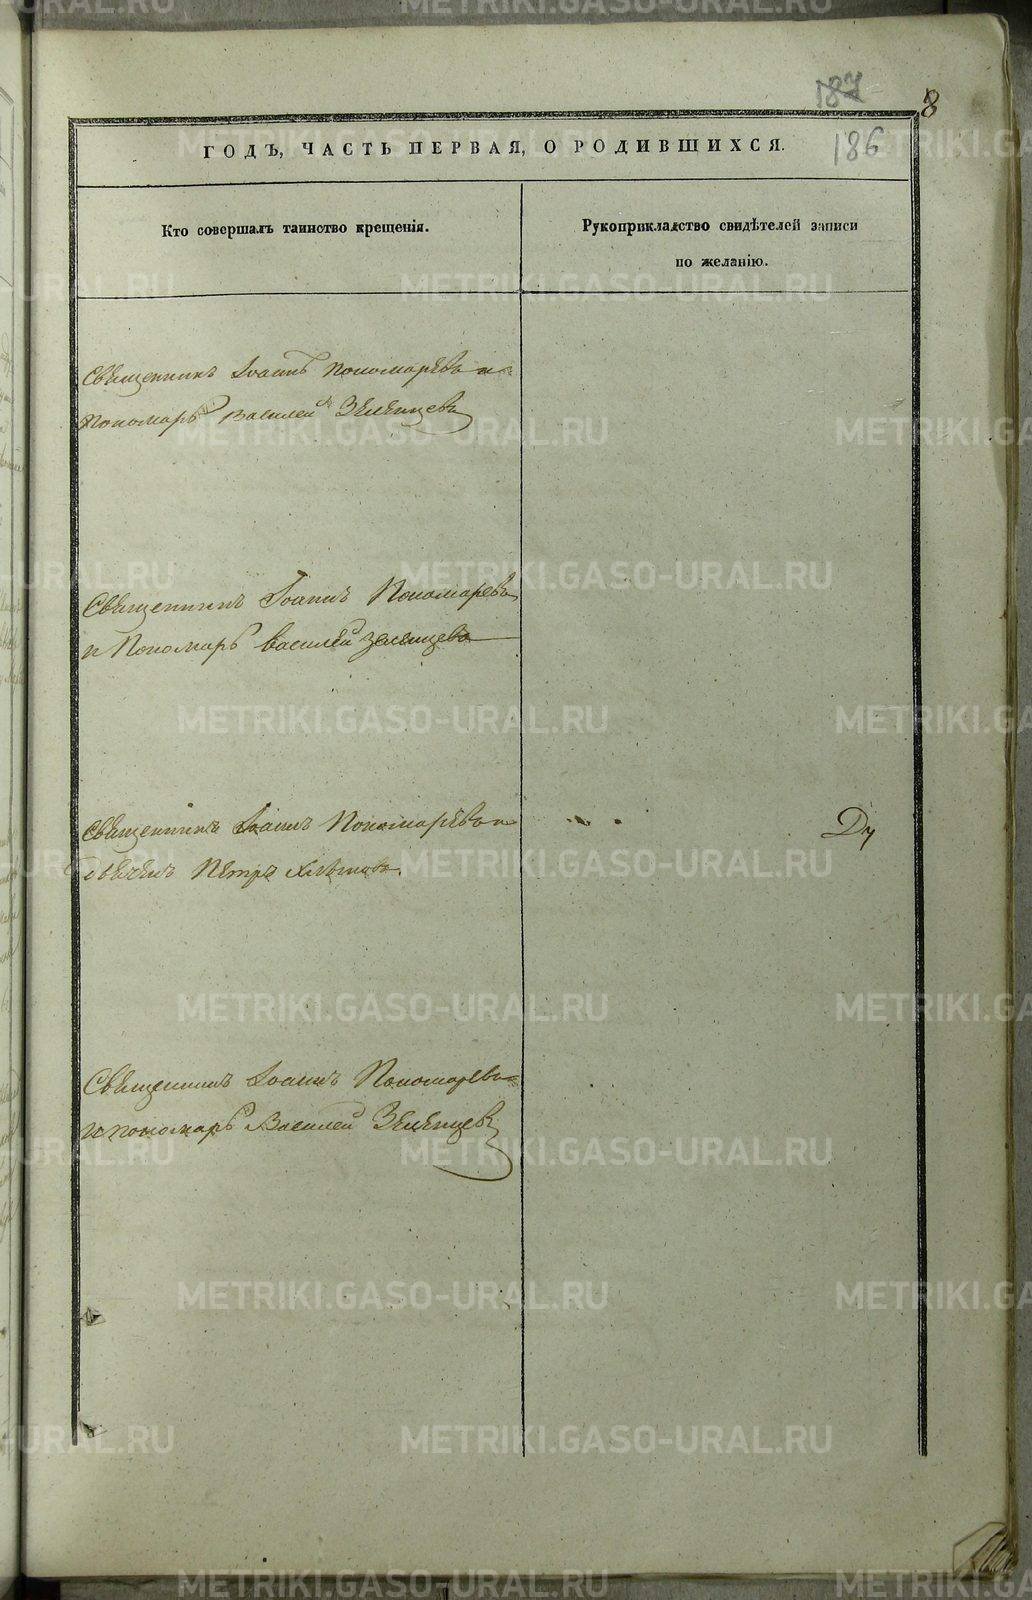 187
8
186
ГОДЪ, ЧАСТЬ ПЕРВАЯ, О РОДИВШИХСЯ.
Кто совершалъ таинство крещенія.
Рукоприкладство свидѣтелей записи
по желанію.
Священникъ Іоаннъ Пономаревъ и
Пономарь Василей Зеленцевъ
Священникъ Іоаннъ Пономаревъ
и Пономарь Василей Зеленцевъ
Священникъ Іоаннъ Пономаревъ и
Петръ
Священникъ Іоаннъ Пономаревъ
и пономарь Василей Зеленцевъ
METRIKI.GASO-URAL.RU